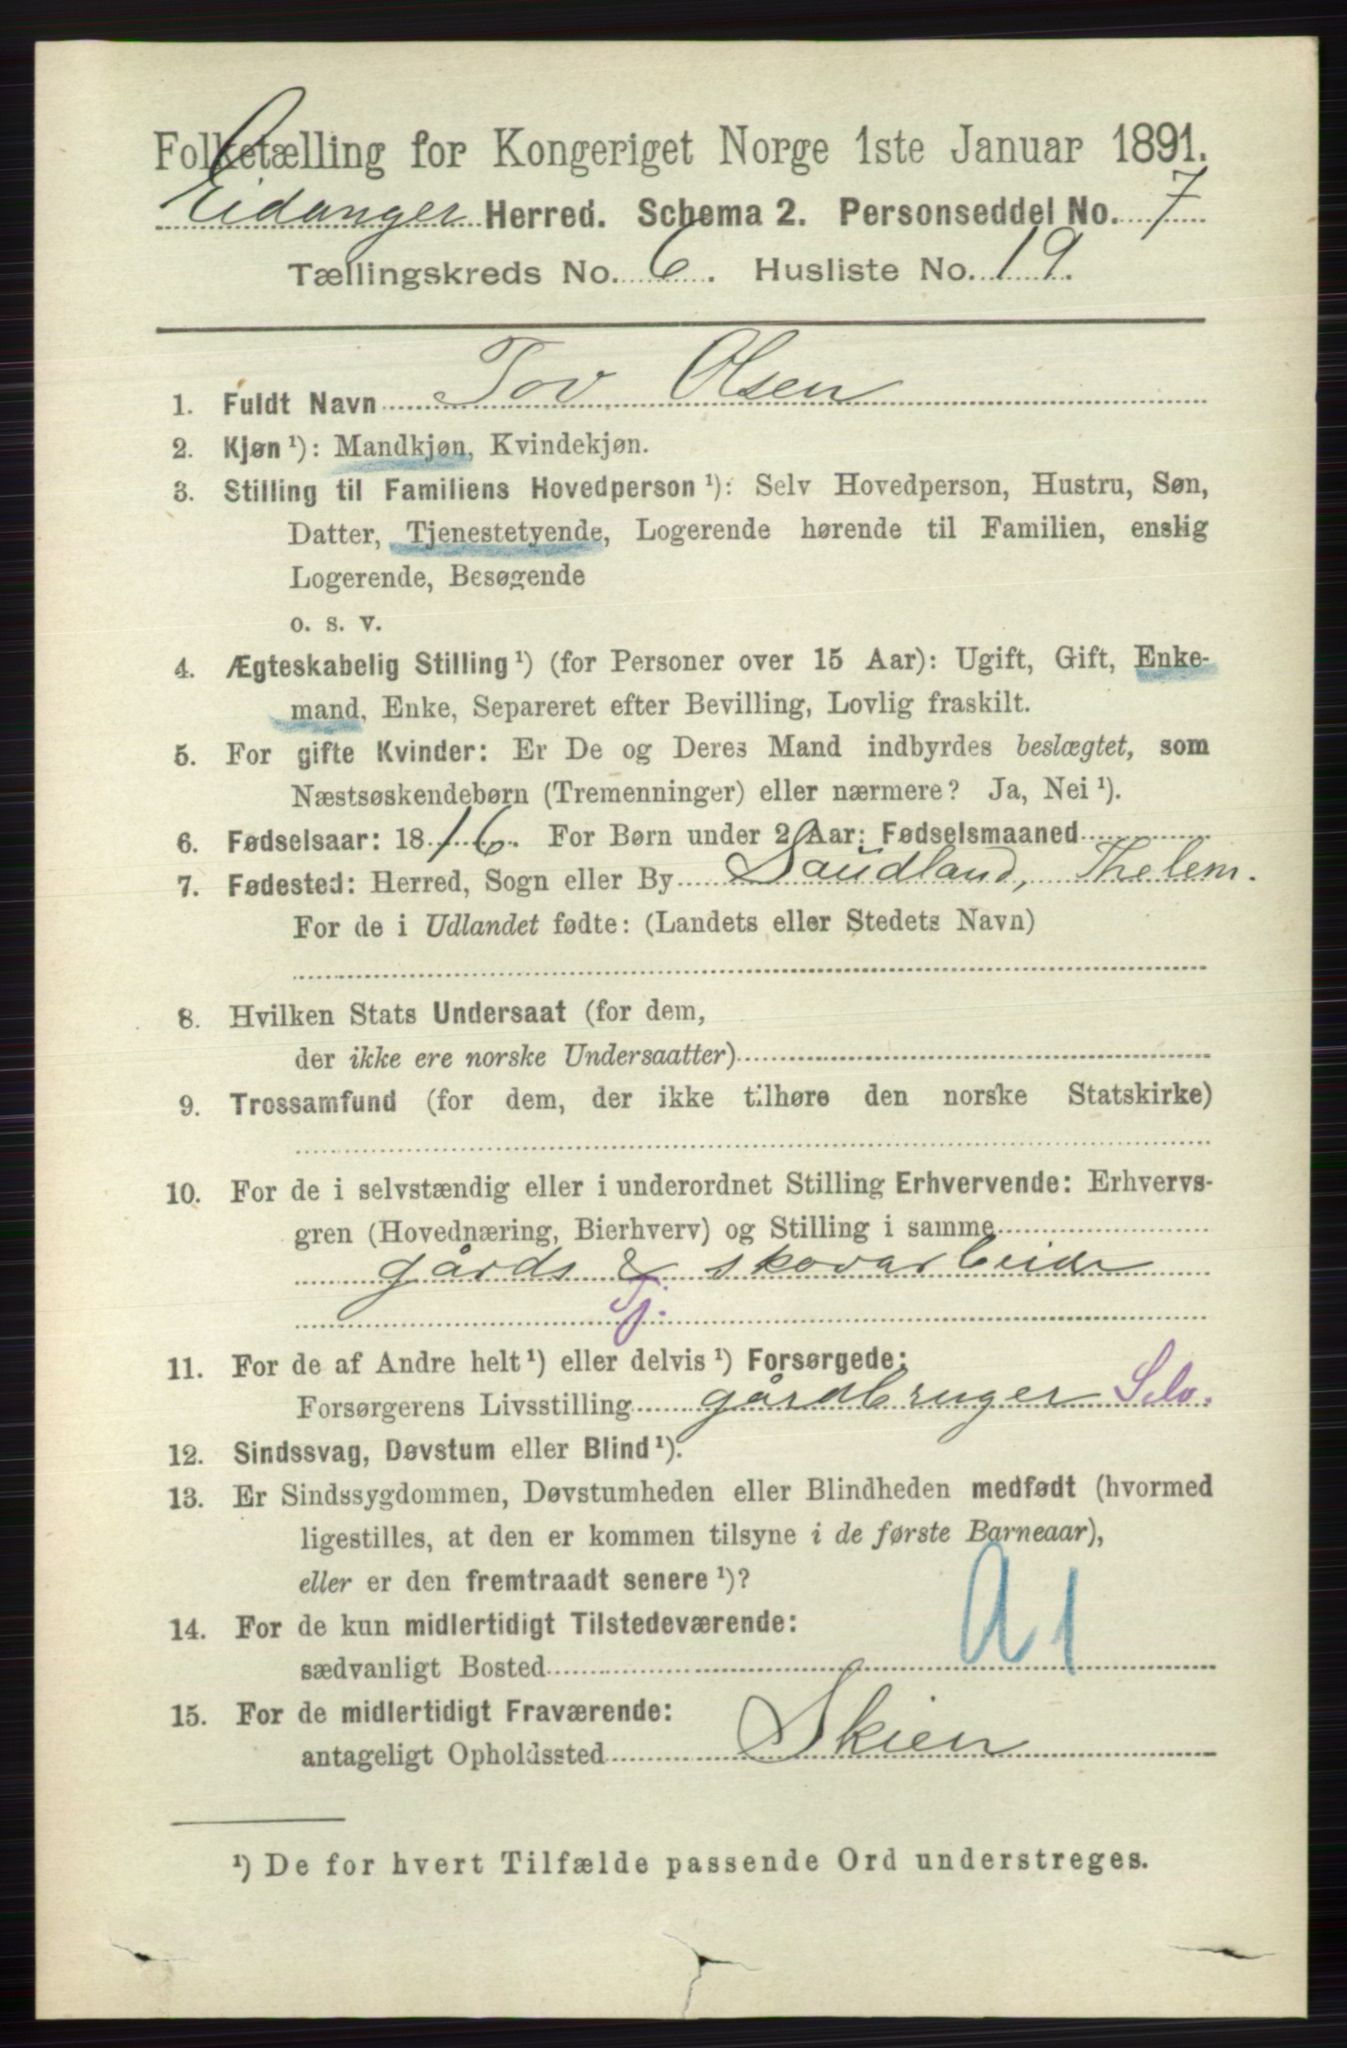 Folketælling for Kongeriget Norge 1ste Januar 1891.
Eidanger Herred. Schema 2. Personseddel No. 7
Tællingskreds No. 6. Husliste No. 19.
1. Fuldt Navn Tov Olsen
2. Kjøn ¹): Mandkjøn, Kvindekjøn.
3. Stilling til Familiens Hovedperson ¹): Selv Hovedperson, Hustru, Søn,
Datter, Tjenestetyende, Logerende hørende til Familien, enslig
Logerende, Besøgende
o. s. v.
4. Ægteskabelig Stilling ¹) (for Personer over 15 Aar): Ugift, Gift, Enke-
mand, Enke, Separeret efter Bevilling, Lovlig fraskilt.
5. For gifte Kvinder: Er De og Deres Mand indbyrdes beslægtet, som
Næstsøskendebørn (Tremenninger) eller nærmere? Ja, Nei ¹).
6. Fødselsaar: 1816. For Børn under 2 Aar: Fødselsmaaned
7. Fødested: Herred, Sogn eller By Saudland, Thelem.
For de i Udlandet fødte: (Landets eller Stedets Navn)
8. Hvilken Stats Undersaat (for dem,
der ikke ere norske Undersaatter)
9. Trossamfund (for dem, der ikke tilhøre den norske Statskirke)
10. For de i selvstændig eller i underordnet Stilling Erhvervende: Erhvervs-
gren (Hovednæring, Bierhverv) og Stilling i samme
gårds & skovarbeide
Tj.
11. For de af Andre helt ¹) eller delvis ¹) Forsørgede:
Forsørgerens Livsstilling gårdbruger Selv.
12. Sindssvag, Døvstum eller Blind ¹).
13. Er Sindssygdommen, Døvstumheden eller Blindheden medfødt (hvormed
ligestilles, at den er kommen tilsyne i de første Barneaar),
eller er den fremtraadt senere ¹)?
14. For de kun midlertidigt Tilstedeværende:
sædvanligt Bosted
a 1
15. For de midlertidigt Fraværende:
antageligt Opholdssted Skien
¹) De for hvert Tilfælde passende Ord understreges.